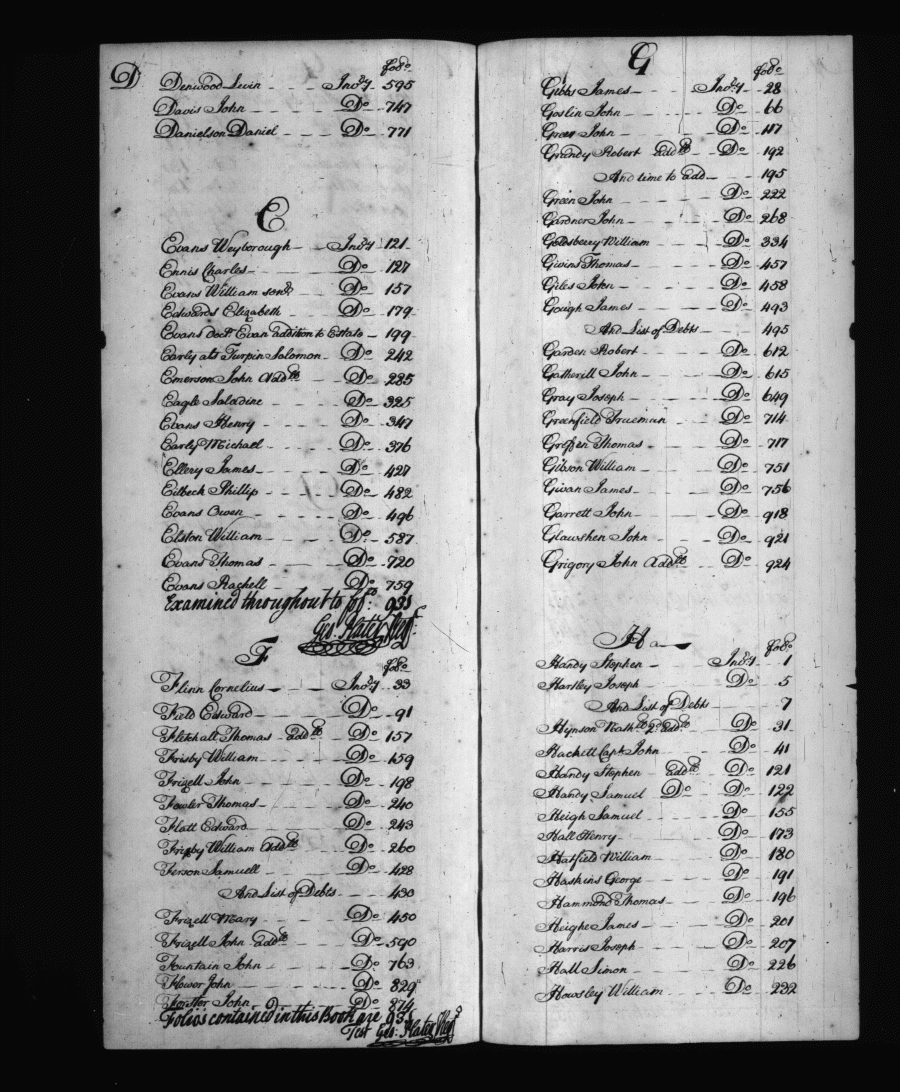 D
fo:o
Denwood Levin Invy 595
Davis John Do 747
Danielson Daniel Do 771
E
Evans Weyborough Invy 121
Ennis Charles Do 127
Evans William Do 157
Edwards Elizabeth Do 179
Evans Evan addition to Estate 199
Early als Turpin Solomon Do 242
Emerson John addl Do 285
Eagle Saladine Do 325
Evans Henry Do 347
Early Michael Do 376
Ellery James Do 427
Eilbeck Phillip Do 482
Evans Owen Do 496
Elston William Do 587
Evans Thomas Do 720
Evans Rachell Do 759
Examined throughout to fo: 935
Geo: Plater Regr
F
fo:o
Flinn Cornelius Invy 33
Field Edward Do 91
Fletchall Thomas addl Do 157
Frisby William Do 159
Frizell John Do 198
Fowler Thomas Do 240
Flatt Edward Do 243
Frisby William addl Do 260
Ferson Samuell Do 428
And List of Debts 430
Frizell Mary Do 450
Frizell John addl Do 590
Fountain John Do 763
Flower John Do 829
Forster John Do 874
Folio's contained in this Book are 935
Test Geo: Plater Regr
G
fo:o
Gibbs James Invy 28
Goslin John Do 66
Green John Do 117
Grundy Robert addl Do 192
And time to add 195
Green John Do 222
Gardner John Do 268
Goldsberry William Do 334
Givins Thomas Do 457
Giles John Do 458
Gough James Do 493
And List of Debts 495
Garden Robert Do 612
Gatherill John Do 615
Gray Joseph Do 649
Greenfield Trueman Do 714
Thomas Do 717
Gibson William Do 751
Givan James Do 756
Garrett John Do 918
Glawshen John Do 921
Grigory John addl Do 924
Ha
fo:o
Handy Stephen Invy 1
Hartley Joseph Do 5
And List of Debts 7
Hynson Nathl 2d addl Do 31
Hackett Capt John Do 41
Handy Stephen addl Do 121
Handy Samuel Do Do 122
Heigh Samuel Do 155
Hall Henry Do 173
Hatfield William Do 180
Haskins George Do 191
Hammond Thomas Do 196
Heighe James Do 201
Harris Joseph Do 207
Hall Simon Do 226
Howsley William Do 232